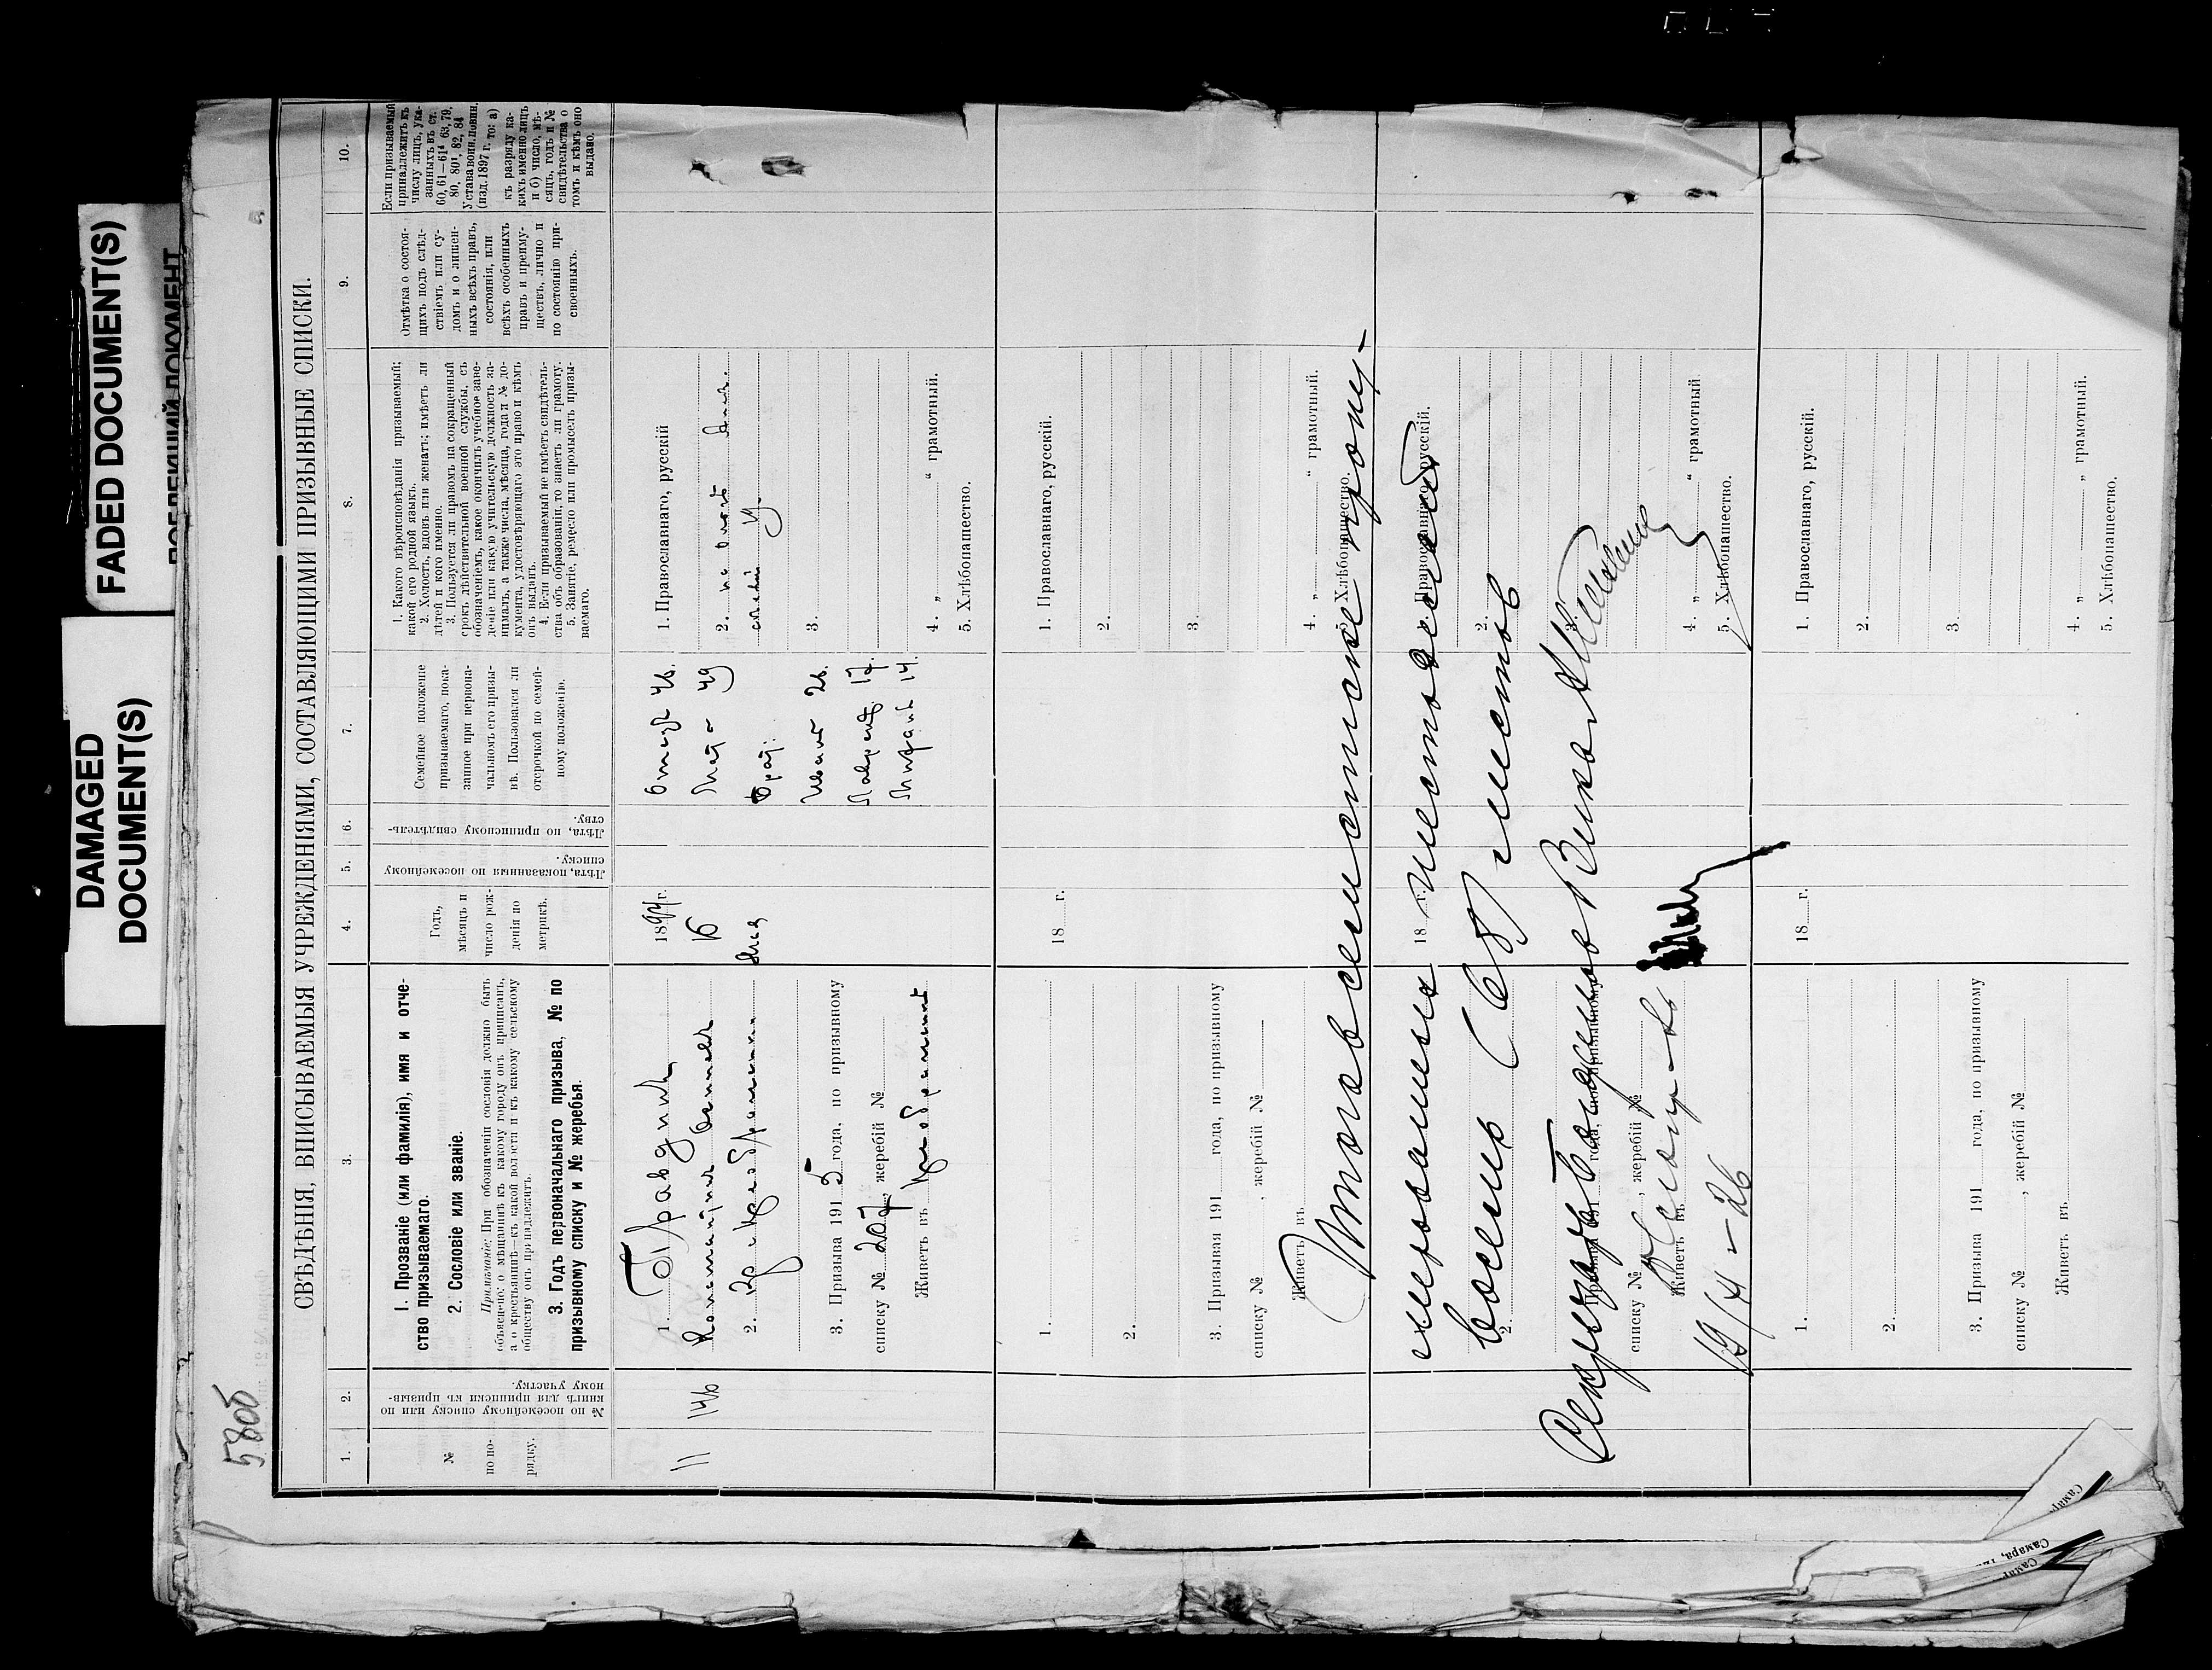 FADED DOCUMENT(S)
DAMAGED
DOCUMENT(S)
580б
СВѢДѢНІЯ, ВПИСЫВАЕМЫЯ УЧРЕЖДЕНІЯМИ, СОСТАВЛЯЮЩИМИ ПРИЗЫВНЫЕ СПИСКИ.
1.
2.
3.
4.
5.
6.
7.
8.
9.
10.
№
по по-
рядку.
№ по посемейному списку или по
книгѣ для приписки къ призыв-
ному участку.
1. Прозваніе (или фамилія), имя и отче-
ство призываемаго.
2. Сословіе или званіе.
Примѣчаніе: При обозначеніи сословія должно быть
объяснено: о мѣщанинѣ къ какому городу онъ приписанъ,
а о крестьянинѣ—къ какой волости и къ какому сельскому
обществу онъ принадлежитъ.
3. Годъ первоначальнаго призыва, № по
призывному списку и № жеребья.
Годъ,
мѣсяцъ и
число рож-
денія по
метрикѣ.
Лѣта, показанныя по посемейному
списку.
Лѣта, по приписному свидѣтель-
ству.
Семейное положеніе
призываемаго, пока-
занное при первона-
чальномъ его призы-
вѣ. Пользовался ли
отсрочкой по семей-
ному положенію.
1. Какого вѣроисповѣданія призываемый;
какой его родной языкъ.
2. Холостъ, вдовъ или женатъ; имѣетъ ли
дѣтей и кого именно.
3. Пользуется ли правомъ на сокращенный
срокъ дѣйствительной военной службы, съ
обозначеніемъ, какое окончилъ учебное заве-
деніе или какую учительскую должность за-
нималъ, а также числа, мѣсяца, года и № до-
кумента, удостовѣряющаго это право и кѣмъ
онъ выданъ.
4. Если призываемый не имѣетъ свидѣтель-
ства объ образованіи, то знаетъ ли грамоту.
5. Занятіе, ремесло или промыселъ призы-
ваемаго.
Отмѣтка о состоя-
щихъ подъ слѣд-
ствіемъ или су-
домъ и о лишен-
ныхъ всѣхъ правъ,
состоянія, или
всѣхъ особенныхъ
правъ и преиму-
ществъ, лично и
по состоянію при-
своенныхъ.
Если призываемый
принадлежитъ къ
числу лицъ, ука-
занныхъ въ ст.
60, 61—61⁴ 63, 79,
80, 80¹, 82, 84
Устава воин. повин.
(изд. 1897 г. то: а)
къ разряду ка-
кихъ именно лицъ
и б) число, мѣ-
сяцъ, годъ и №
свидѣтельства о
томъ и кѣмъ оно
выдано.
11
146
1.
Константинъ
2.
3. Призыва 1915 года, по призывному
списку № 207, жеребій №
Живетъ въ
1894 г.
16
Мая
Отецъ 46.
Мать 49
Брат:
Иванъ 26.
Лаврент 17.
14.
1. Православнаго, русскій
2.
3.
4. „ “ грамотный.
5. Хлѣбопашество.
1.
2.
3. Призывая 191 года, по призывному
списку № , жеребій №
Живетъ въ
18 г.
1. Православнаго, русскій.
2.
3.
4. „ “ грамотный.
5. Хлѣбопашество.
Итого в сем списке прону-
мерованных шестьдесят
восемь (68) листов
Секретарь
19/ – 26
2.
списку № , жеребій №
Живетъ въ
18 г.
Православнаго, русскій.
2.
3.
4. „ “ грамотный
5. Хлѣбопашество.
1.
2.
3. Призыва 191 года, по призывному
списку № , жеребій №
Живетъ въ
18 г.
1. Православнаго, русскій.
2.
3.
4. „ “ грамотный.
5. Хлѣбопашество.